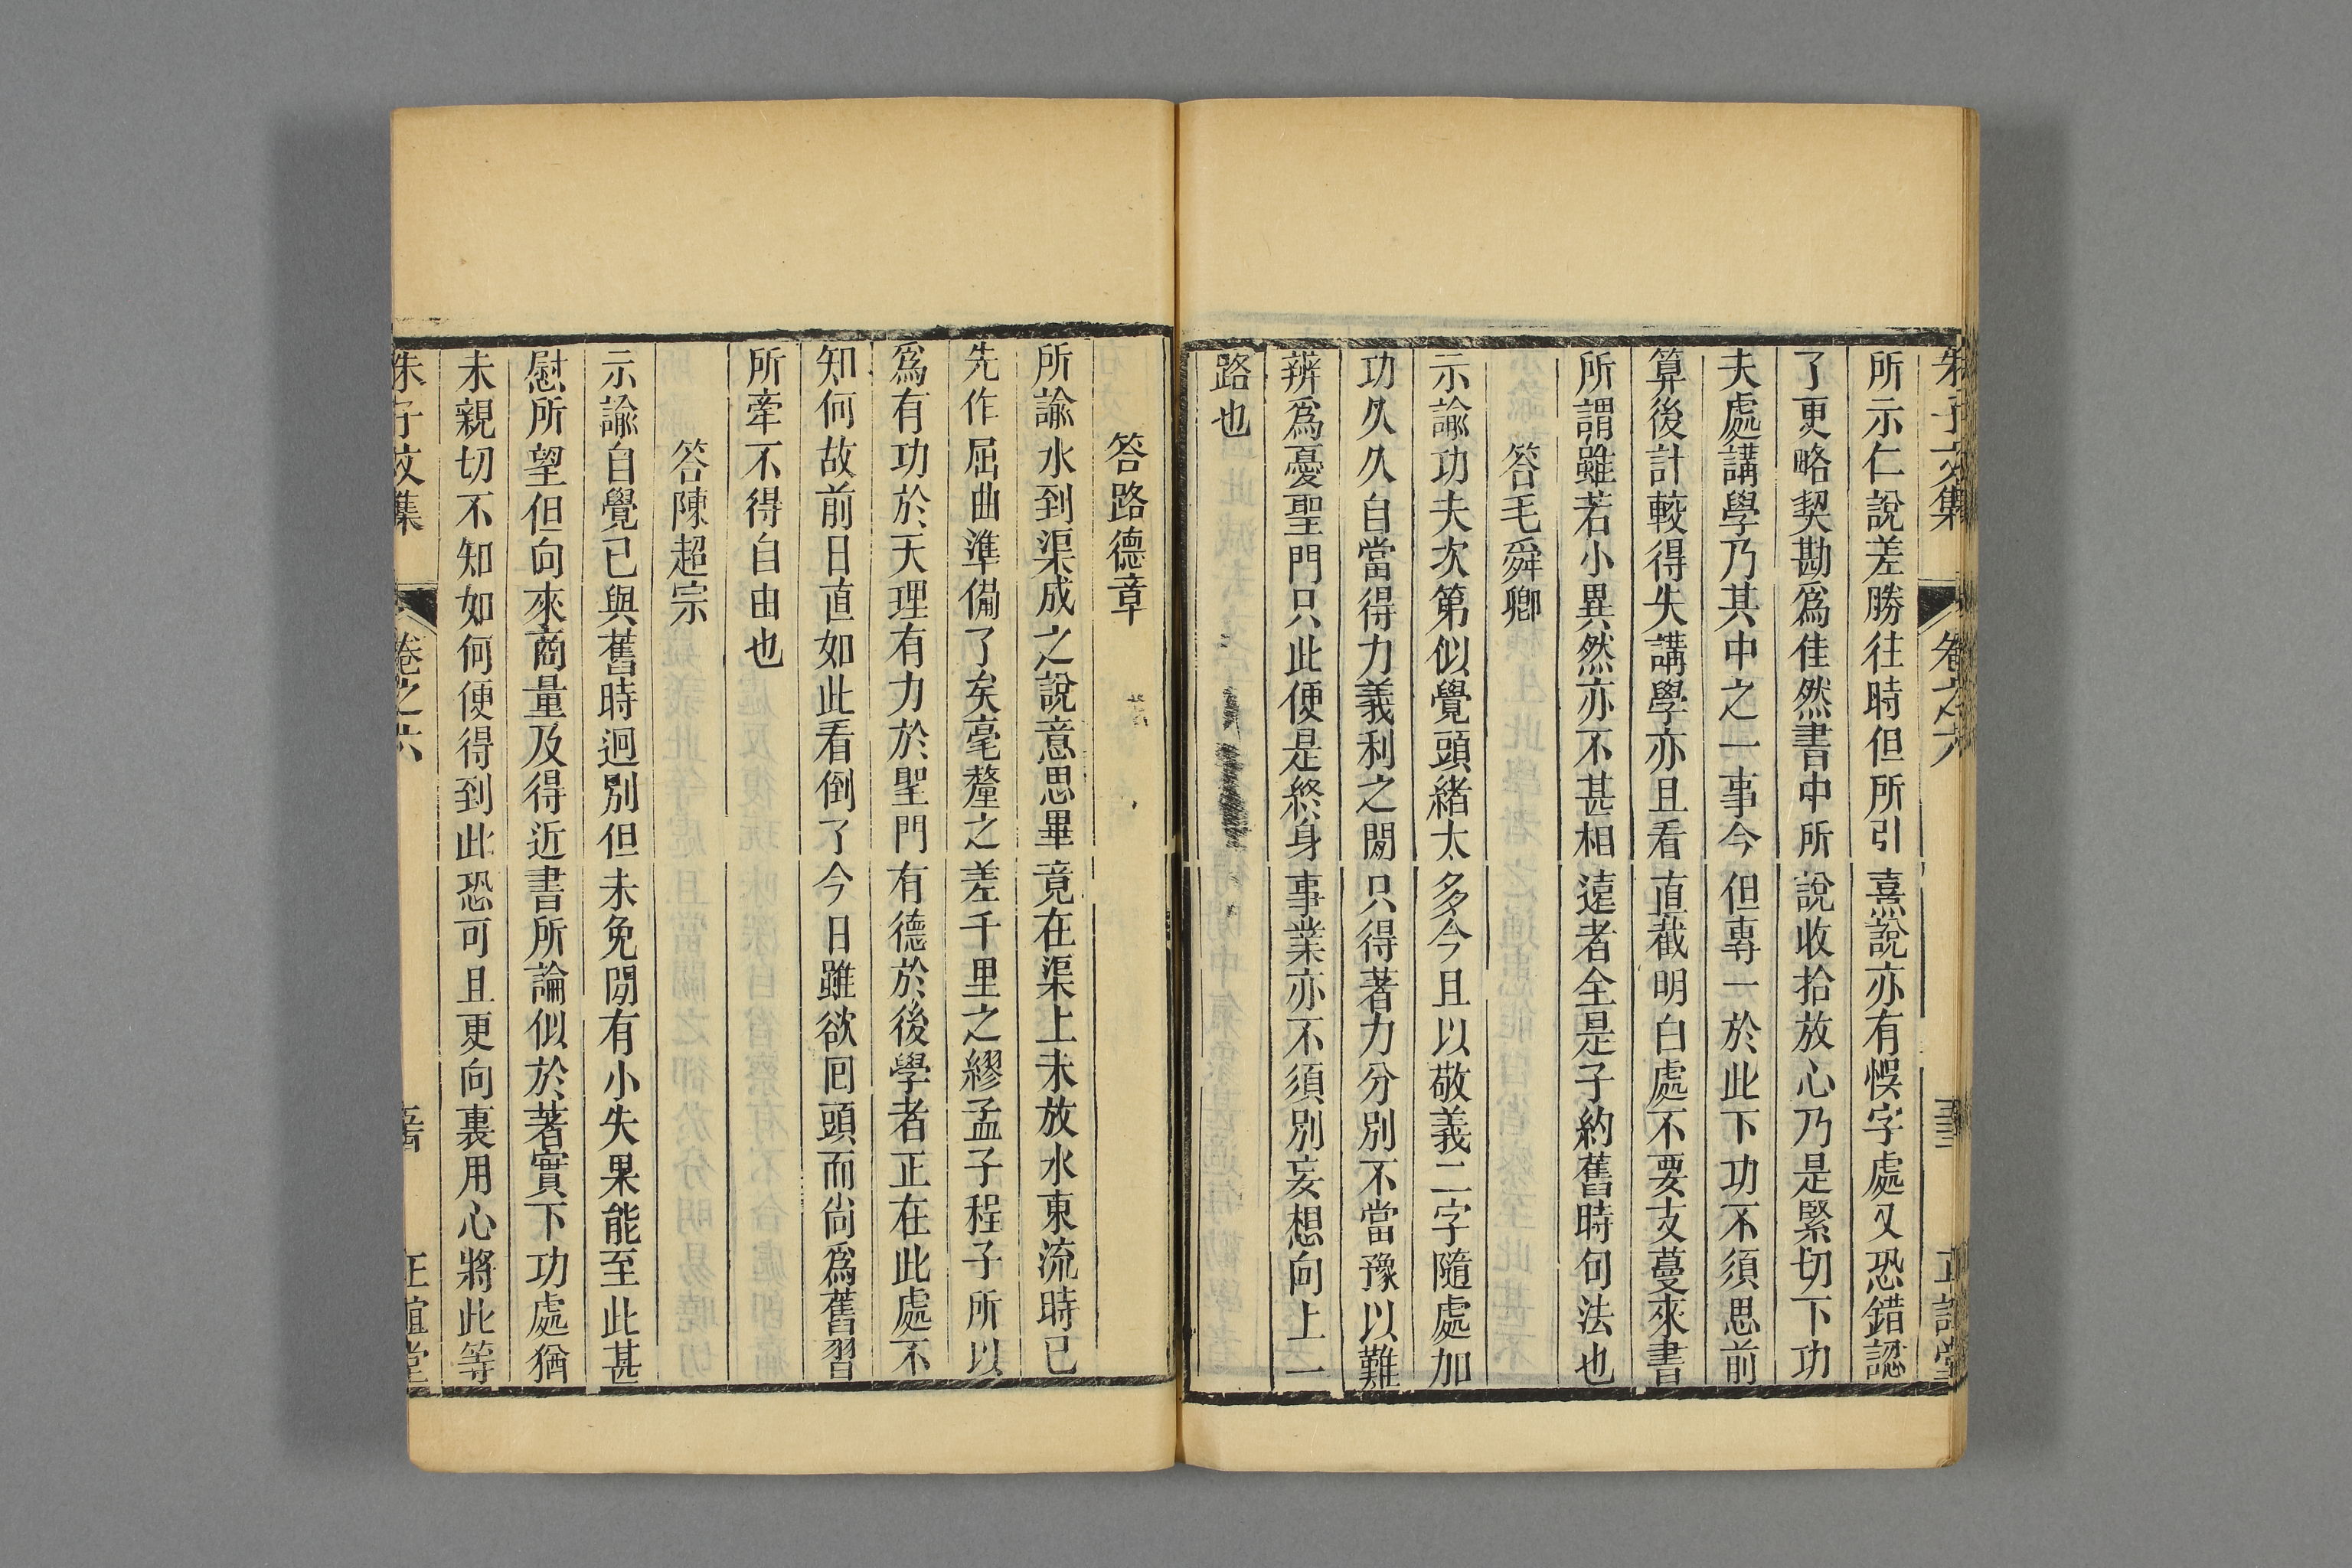 朱子文集 卷之六 正誼堂
所示仁說差勝往時但所引熹說亦有悞字處又恐錯認
了更略契勘爲佳然書中所說收拾放心乃是緊切下功
夫處講學乃其中之一事今但專一於此下功不須思前
算後計較得失講學亦且看直截明白處不要支蔓來書
所謂雖若小異然亦不甚相遠者全是子約舊時句法也
答毛舜卿
示諭功夫次第似覺頭緒太多今且以敬義二字隨處加
功久久自當得力義利之閒只得著力分別不當豫以難
辨爲憂聖門只此便是終身事業亦不須別妄想向上一
路也
答路德章
所諭水到渠成之說意思畢竟在渠上未放水東流時已
先作屈曲準備了矣毫釐之差千里之繆孟子程子所以
爲有功於天理有力於聖門有德於後學者正在此處不
知何故前日直如此看倒了今日雖欲回頭而尙爲舊習
所牽不得自由也
答陳超宗
示諭自覺已與舊時迥別但未免閒有小失果能至此甚
慰所望但向來商量及得近書所論似於著實下功處猶
未親切不知如何便得到此恐可且更向裏用心將此等
朱子文集 卷之六 正誼堂